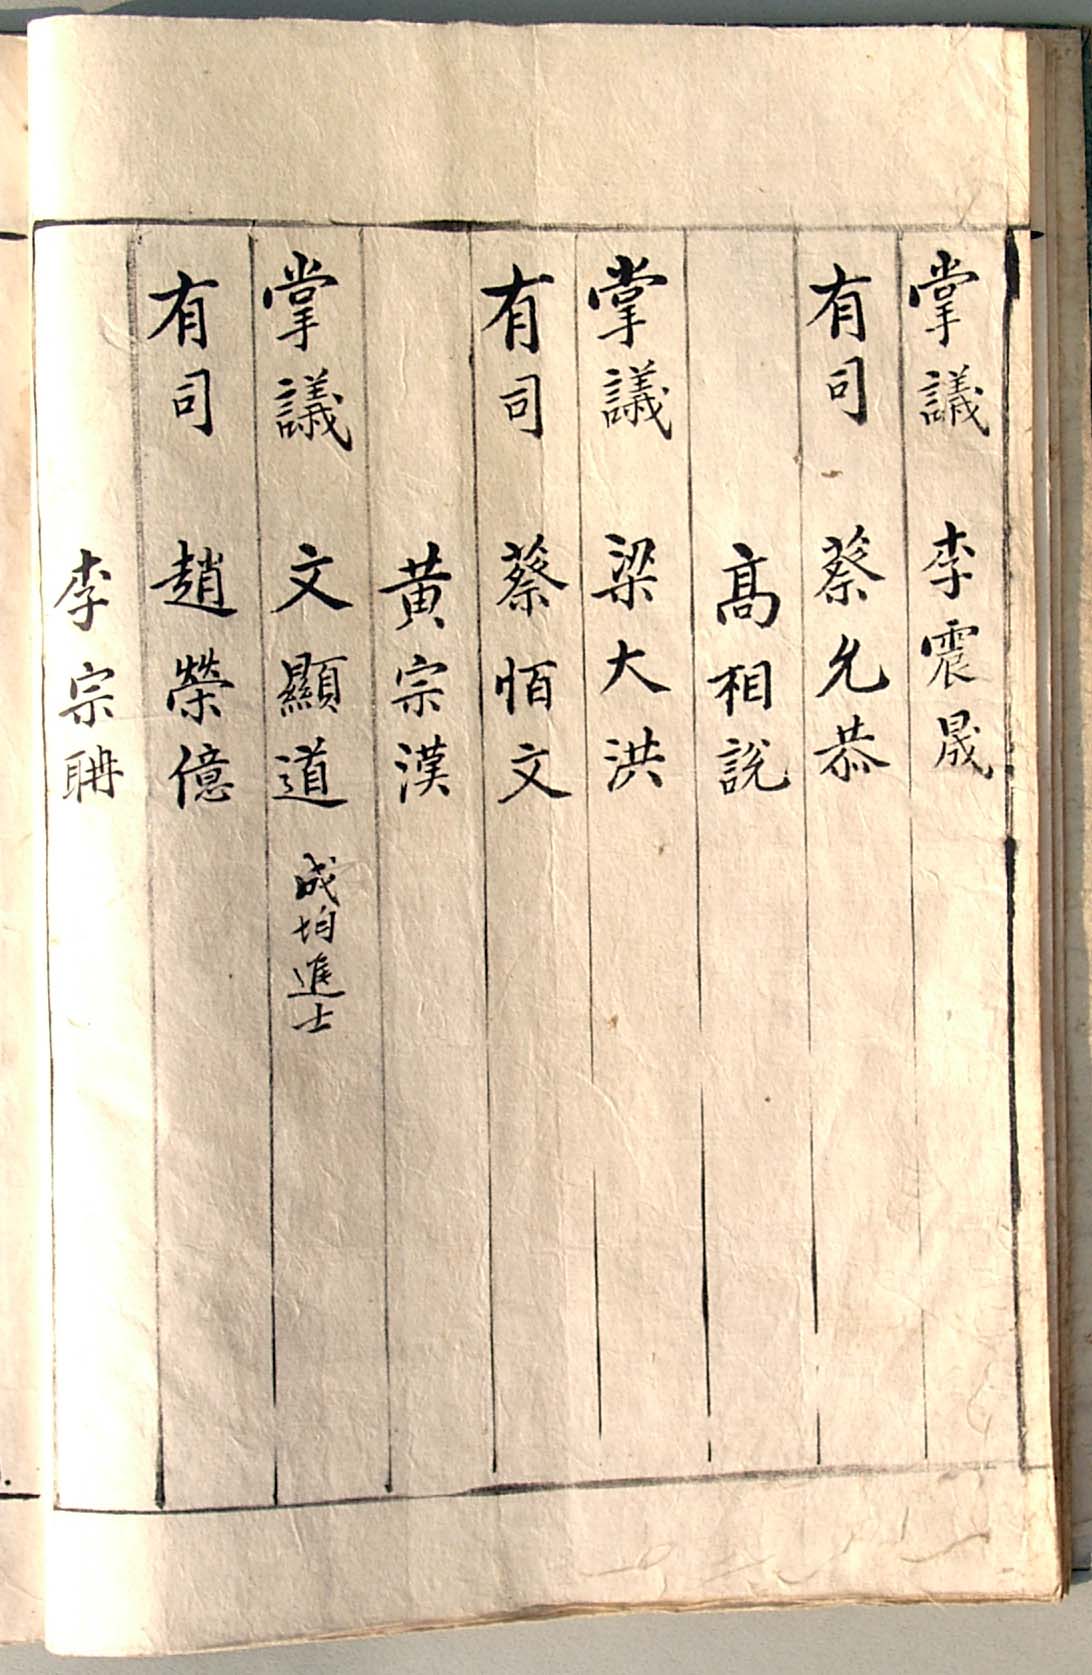 掌議 李震晟
有司 蔡允恭
高相說
掌議 梁大洪
有司 蔡恒文
黄宗漢
掌議 文顯道 成均進士
有司 趙榮億
李宗聃